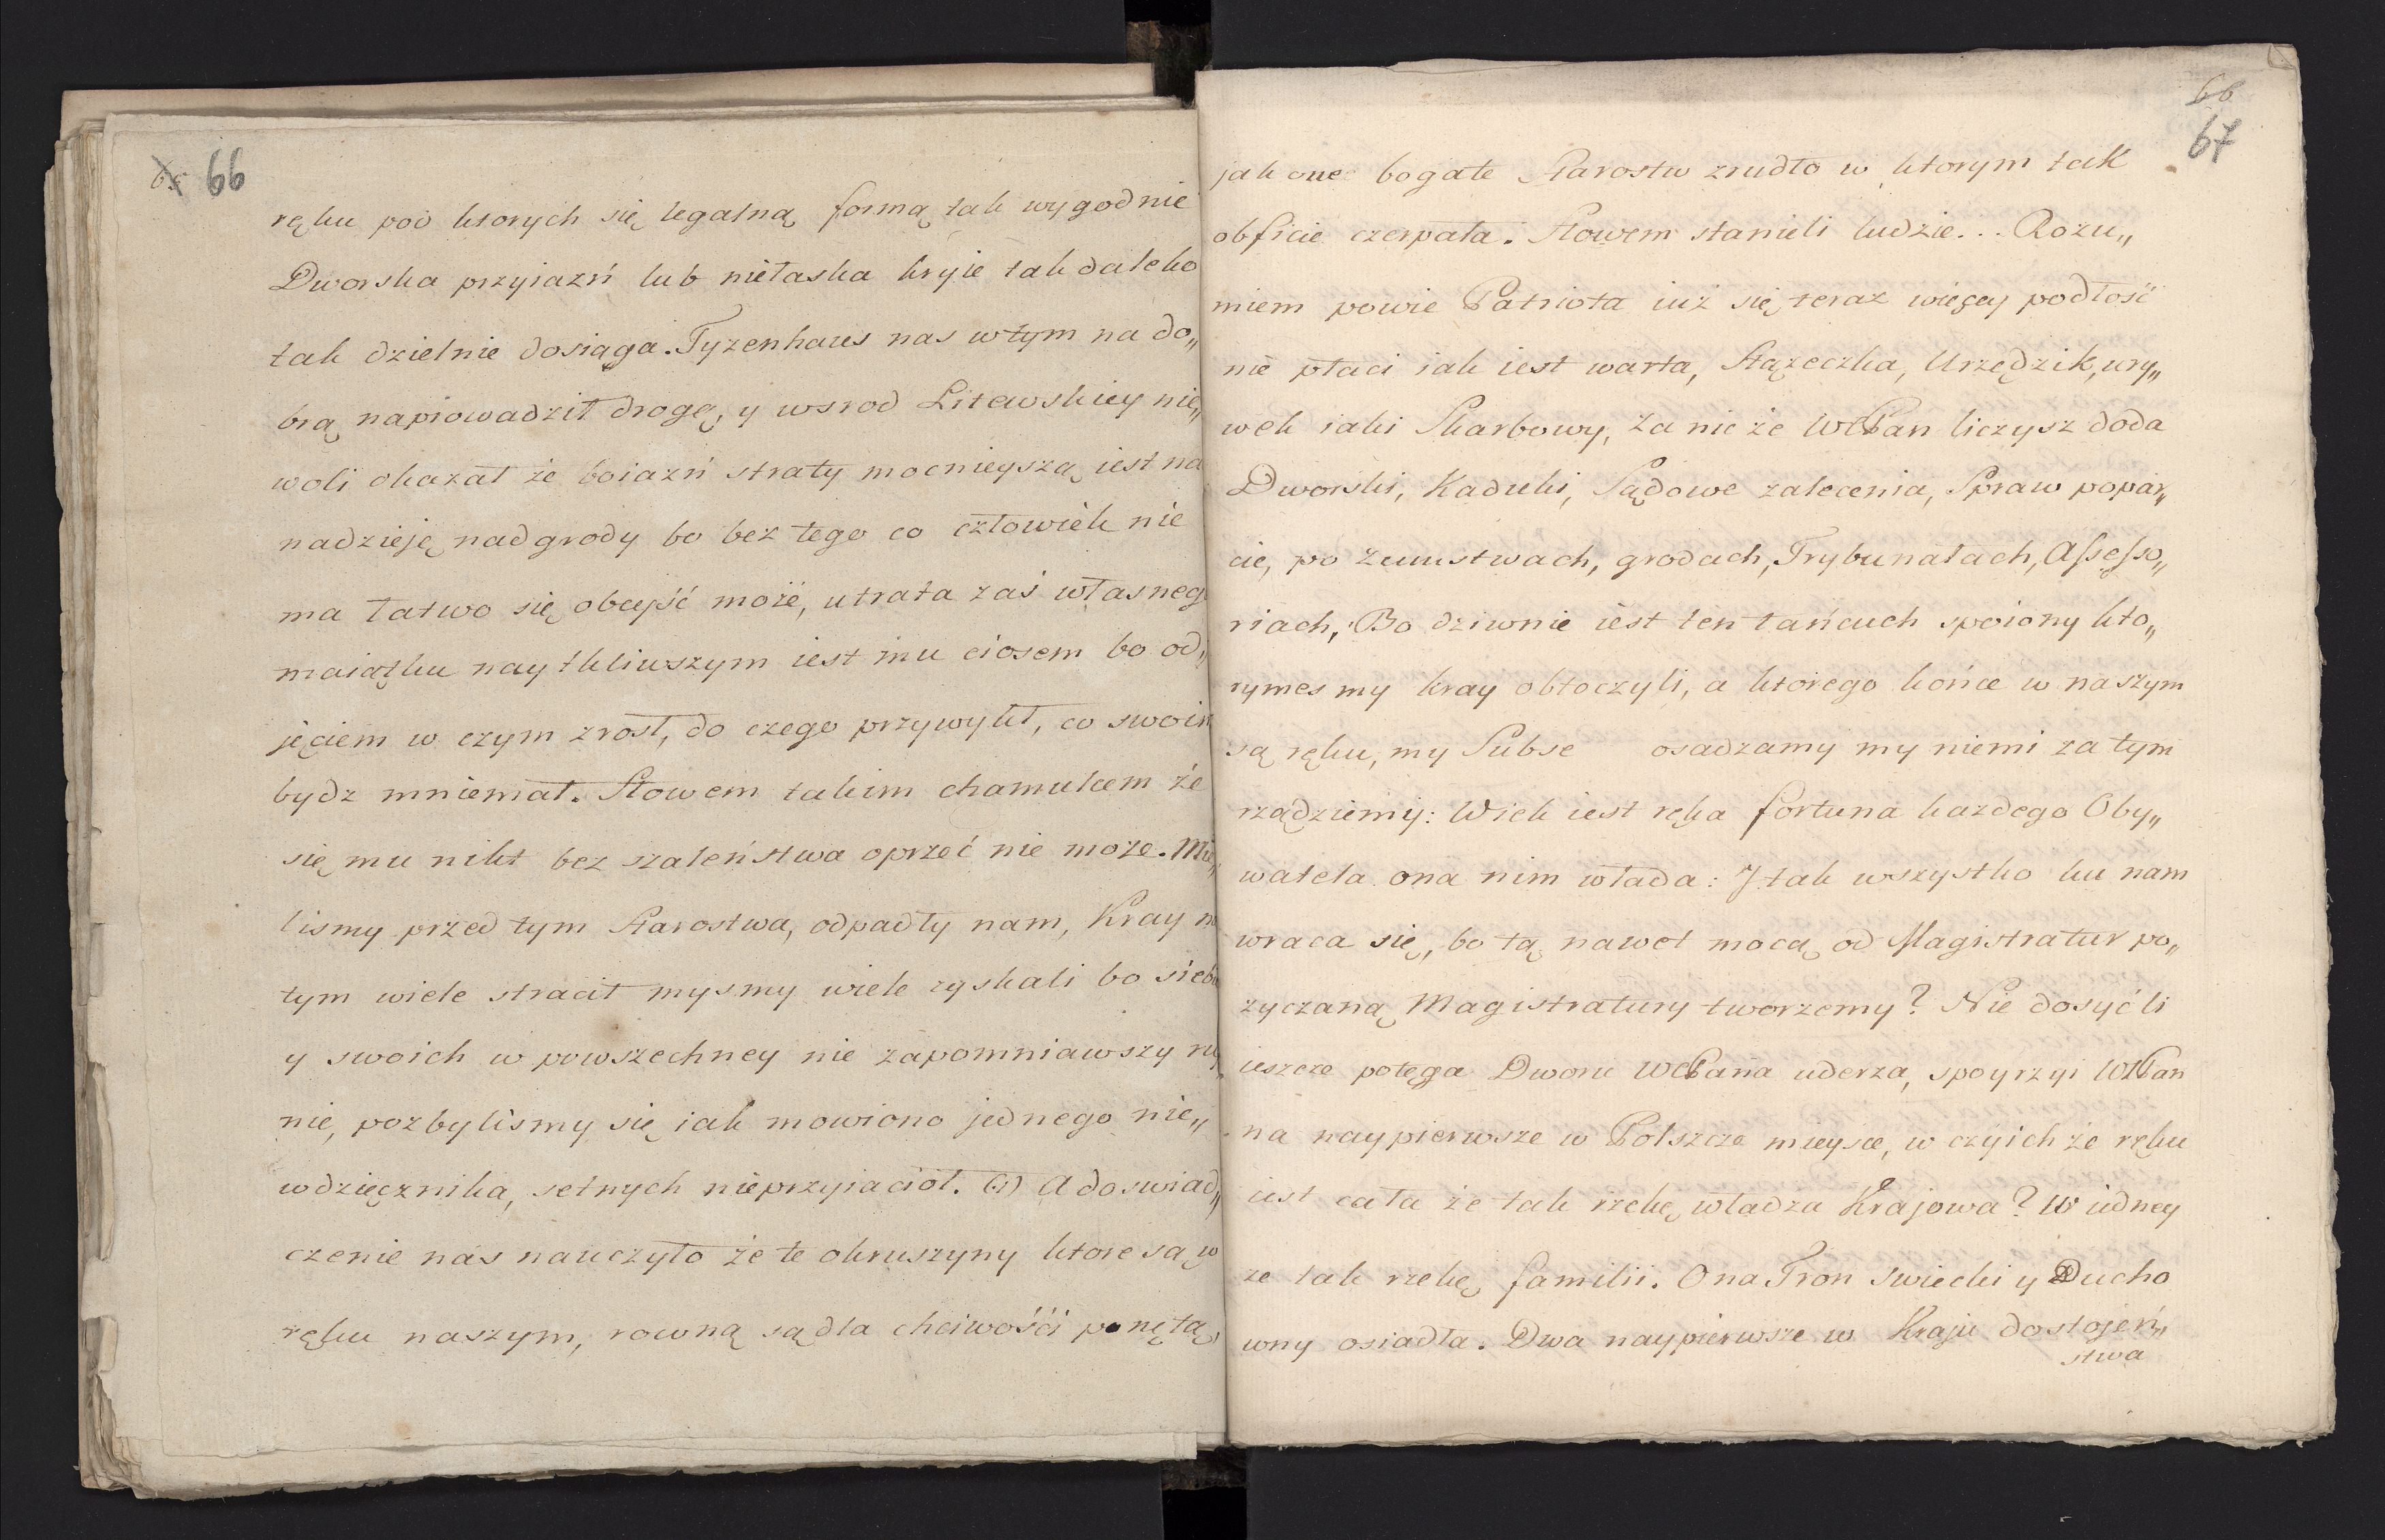 66
ręku pod ktorych się legalną formą tak wygodnie
Dworska przyiazń lub niełaska kryie tak daleko
tak dzielnie dosiąga. Tyzenhaus nas w tym na do„
brą naprowadził drogę, y wsrod Litewskiey nie„
woli okazał że boiazń straty mocnieyszą iest na
nadzieję nadgrody bo bez tego co człowiek nie
ma łatwo się obeyść może, utrata zaś własneg
maiątku naytkliwszym iest mu ciosem bo od„
jęciem w czym zrosł, do czego przywykł, co swoim
bydz mniemał. Słowem takim chamulcem że
się mu nikt bez szaleństwa oprzeć nie może. Mie„
lismy przed tym Starostwa, odpadły nam, Kray
tym wiele stracił mysmy wiele zyskali bo siebie
y swoich w powszechney nie zapomniawszy
nie, pozbylismy się iak mowiono jednego nie„
wdzięcznika, setnych nieprzyiacioł. A doswiad„
czenie nas nauczyło że te okruszyny ktore są w
ręku naszym, rowną są dla chciwośći ponętą,
66
67
jak one bogate Starostw zrudło w ktorym tak
obficie czerpała. Słowem stanieli ludzie... Rozu„
miem powie Patriota iuż się teraz więcey podłość
nie płaci iak iest warta, Stązeczka, Urzędzik, ury„
wek iaki Skarbowy, za nic że WCPan liczysz doda
Dworski, Kaduki, Sądowe zalecenia, Spraw popar„
cie, po Zemstwach, grodach, Trybunałach, Assesso„
riach, Bo dziwnie iest ten łańcuch spoiony kto„
rymesmy kray obtoczyli, a ktorego końce w naszym
są ręku, my Subse osadzamy my niemi za tym
rządziemy: Wich iest ręka fortuna kazdego Oby„
watela ona nim włada: I tak wszystko ku nam
wraca się, bo tą nawet mocą od Magistratur po„
zyczaną Magistratury tworzemy? Nie dosyć li
ieszcze potęga Dworu WCPana uderza, spoyrzyi WCPan
na naypierwsze w Polszcze mieysce, w czyich że ręku
iest cała że tak rzekę władza Krajowa? W iedney
ze tak rzekę familii. Ona Tron swiecki y Ducho
wny osiadła. Dwa naypierwsze w Kraju dostojeń„
stwa